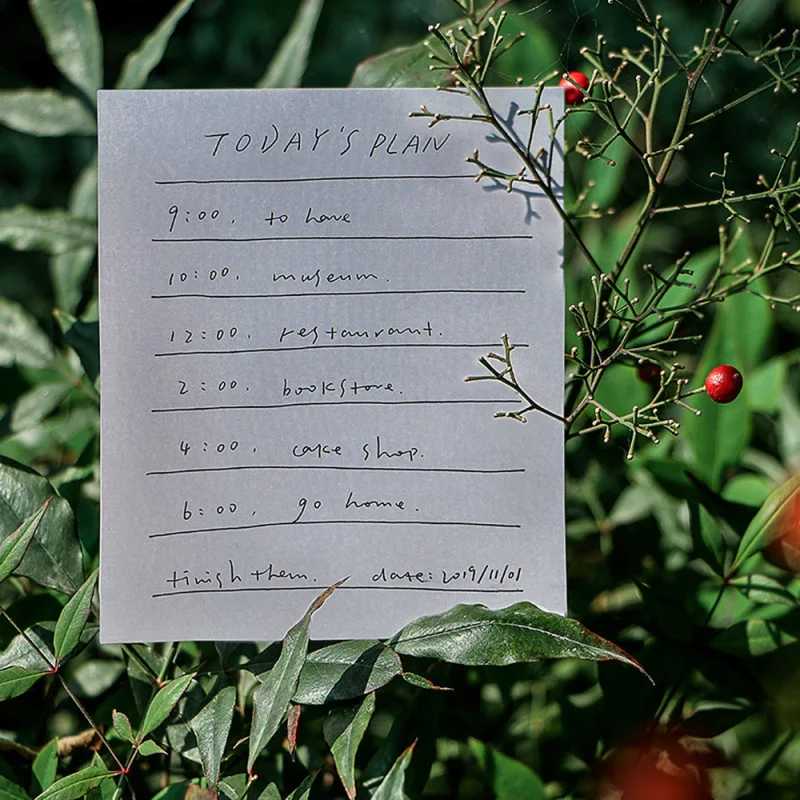 TODAY'S PLAN
9:00. to have
10:00. museum.
12:00. restaurant.
2:00. bookstore.
4:00. cake shop.
6:00. go home.
finish them. date: 2019/11/01